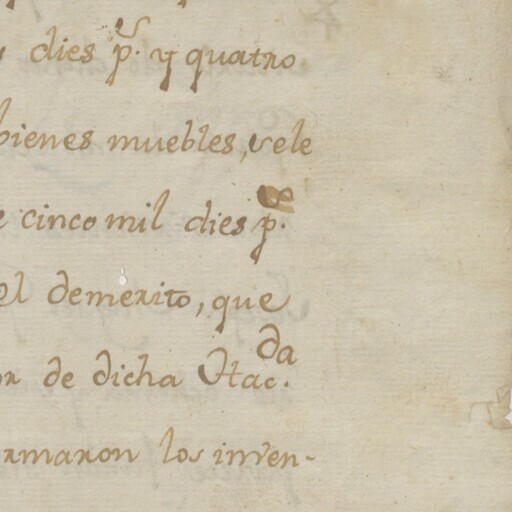 dies p.^s y quatro
bienes muebles, se le
cinco mil dies p.^s
el demerito, que
de dicha Hac.^da
rmaron los inven-